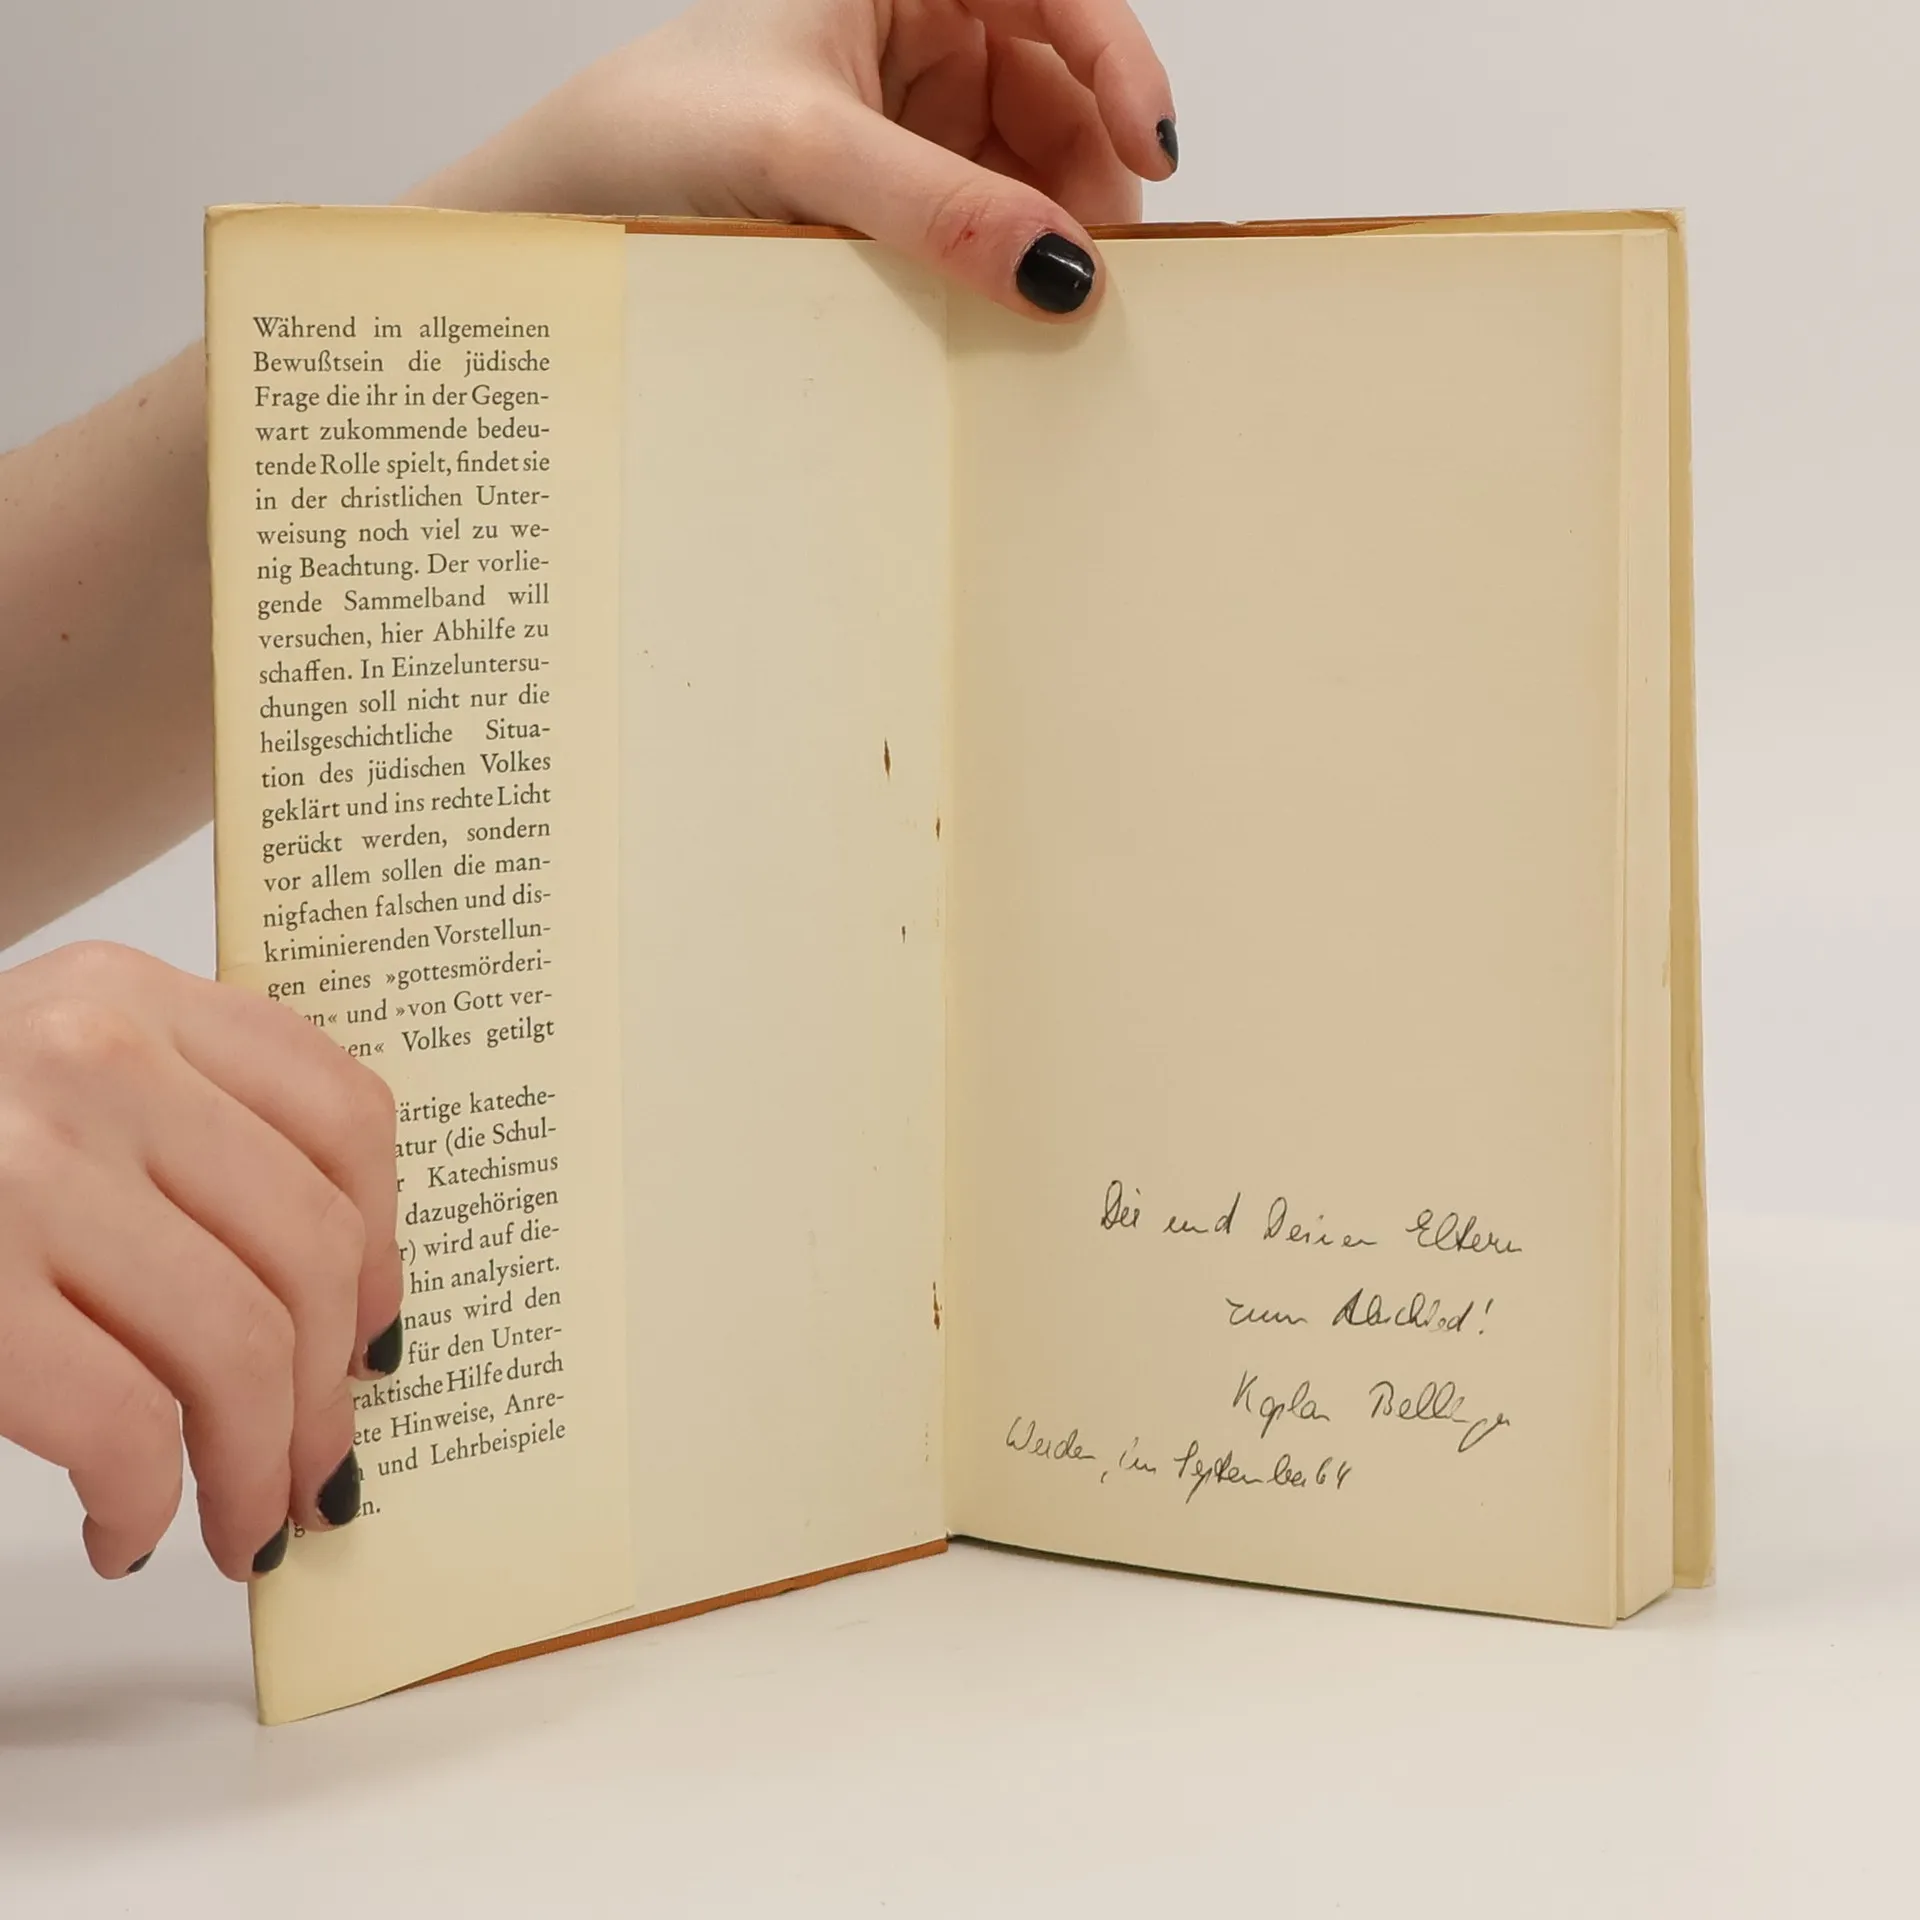 Während im allgemeinen
Bewußtsein die jüdische
Frage die ihr in der Gegen-
wart zukommende bedeu-
tende Rolle spielt, findet sie
in der christlichen Unter-
weisung noch viel zu we-
nig Beachtung. Der vorlie-
gende Sammelband will
versuchen, hier Abhilfe zu
schaffen. In Einzeluntersu-
chungen soll nicht nur die
heilsgeschichtliche Situa-
tion des jüdischen Volkes
geklärt und ins rechte Licht
gerückt werden, sondern
vor allem sollen die man-
nigfachen falschen und dis-
kriminierenden Vorstellun-
gen eines »gottesmörderi-
en« und »von Gott ver-
en« Volkes getilgt
ärtige kateche-
atur (die Schul-
r Katechismus
dazugehörigen
r) wird auf die-
hin analysiert.
naus wird den
für den Unter-
raktische Hilfe durch
ete Hinweise, Anre-
und Lehrbeispiele
en.
Dir und Deinen Eltern
zum Abschied!
Kaplan
Werden, im September 64